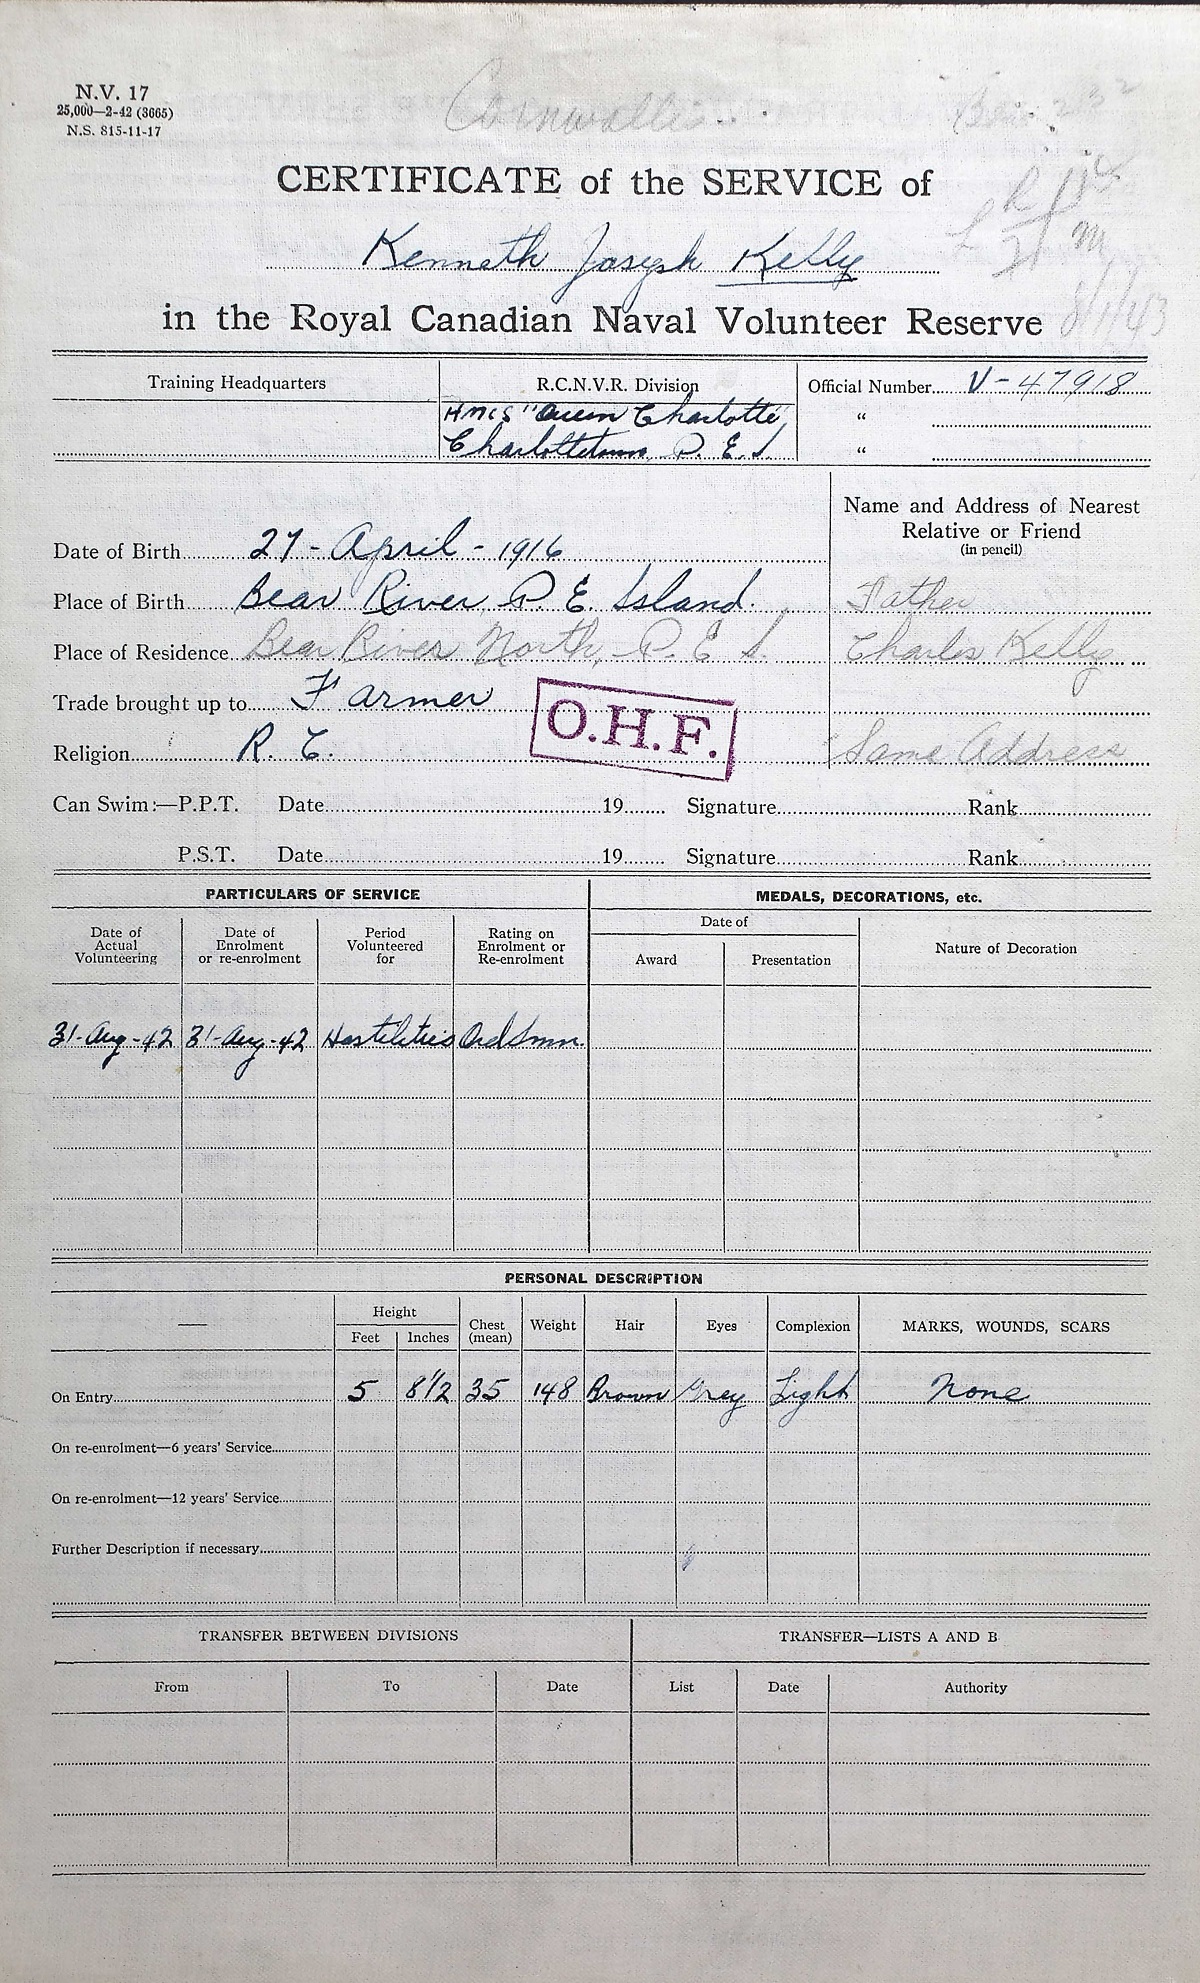 N.V. 17
25,000—2-42 (3665)
N.S. 815-11-17
Cornwallis
CERTIFICATE of the SERVICE of
Kenneth Joseph Kelly
in the Royal Canadian Naval Volunteer Reserve
8/1/43
Training Headquarters R.C.N.V.R. Division Official Number V-47918
HMCS "Queen Charlotte "
Charlottetown P.E.I. "
Name and Address of Nearest
Relative or Friend
(in pencil)
Date of Birth 27-April-1916
Place of Birth Bear River P.E. Island. Father
Place of Residence Bear River North, P.E.I. Charles Kelly
Trade brought up to Farmer
O.H.F.
Religion R.C. Same Address
Can Swim:—P.P.T. Date 19 Signature Rank
P.S.T. Date 19 Signature Rank
PARTICULARS OF SERVICE MEDALS, DECORATIONS, etc.
Date of Actual Volunteering Date of Enrolment or re-enrolment Period Volunteered for Rating on Enrolment or Re-enrolment Date of Nature of Decoration
Award Presentation
31-Aug-42 31-Aug-42 Hostilities Ord Smn.
PERSONAL DESCRIPTION
— Height Chest (mean) Weight Hair Eyes Complexion MARKS, WOUNDS, SCARS
Feet Inches
On Entry 5 8 1/2 35 148 Brown Grey Light None
On re-enrolment—6 years' Service
On re-enrolment—12 years' Service
Further Description if necessary
TRANSFER BETWEEN DIVISIONS TRANSFER—LISTS A AND B
From To Date List Date Authority